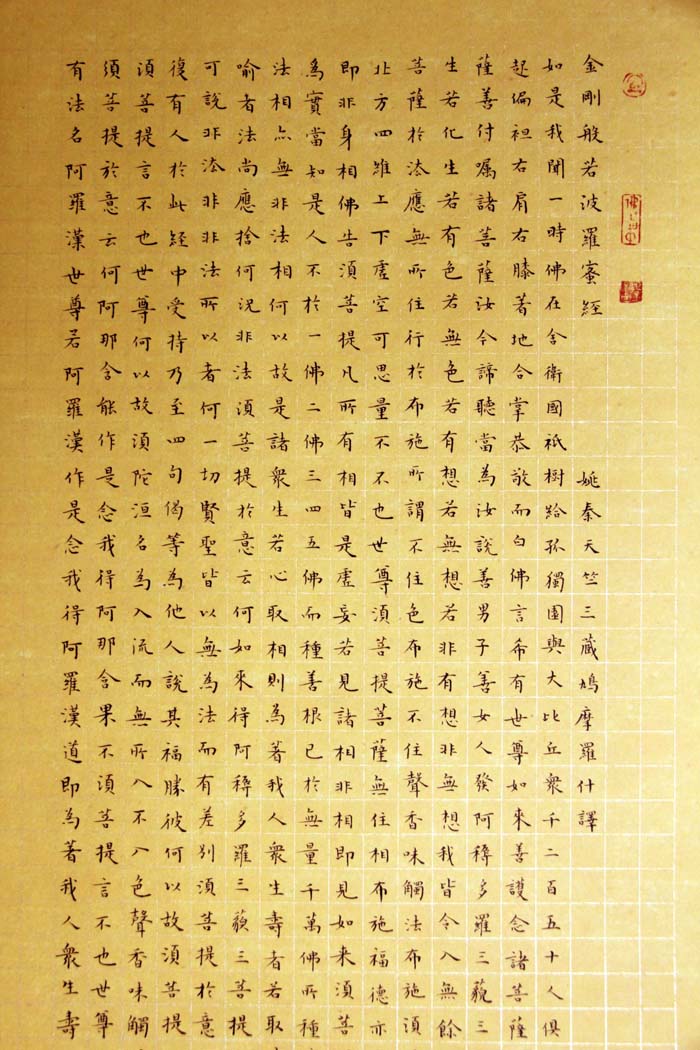 金剛般若波羅蜜經 姚秦天竺三藏鳩摩羅什譯
如是我聞一時佛在舍衛國祇樹給孤獨園與大比丘衆千二百五十人俱
起偏袒右肩右膝著地合掌恭敬而白佛言希有世尊如來善護念諸菩薩
薩善付囑諸菩薩汝今諦聽當為汝說善男子善女人發阿耨多羅三藐三
生若化生若有色若無色若有想若無想若非有想非無想我皆令入無餘
菩薩於法應無所住行於布施所謂不住色布施不住聲香味觸法布施須
北方四維上下虛空可思量不不也世尊須菩提菩薩無住相布施福德亦
即非身相佛告須菩提凡所有相皆是虛妄若見諸相非相即見如来須菩
為實當知是人不於一佛二佛三四五佛而種善根已於無量千萬佛所種
法相亦無非法相何以故是諸衆生若心取相則為著我人衆生壽者若取
喻者法尚應捨何況非法須菩提於意云何如來得阿耨多羅三藐三菩提
可說非法非非法所以者何一切賢聖皆以無為法而有差別須菩提於意
復有人於此經中受持乃至四句偈等為他人說其福勝彼何以故須菩提
須菩提言不也世尊何以故須陀洹名為入流而無所入不入色聲香味觸
須菩提於意云何阿那含能作是念我得阿那含果不須菩提言不也世尊
有法名阿羅漢世尊若阿羅漢作是念我得阿羅漢道即為著我人衆生壽